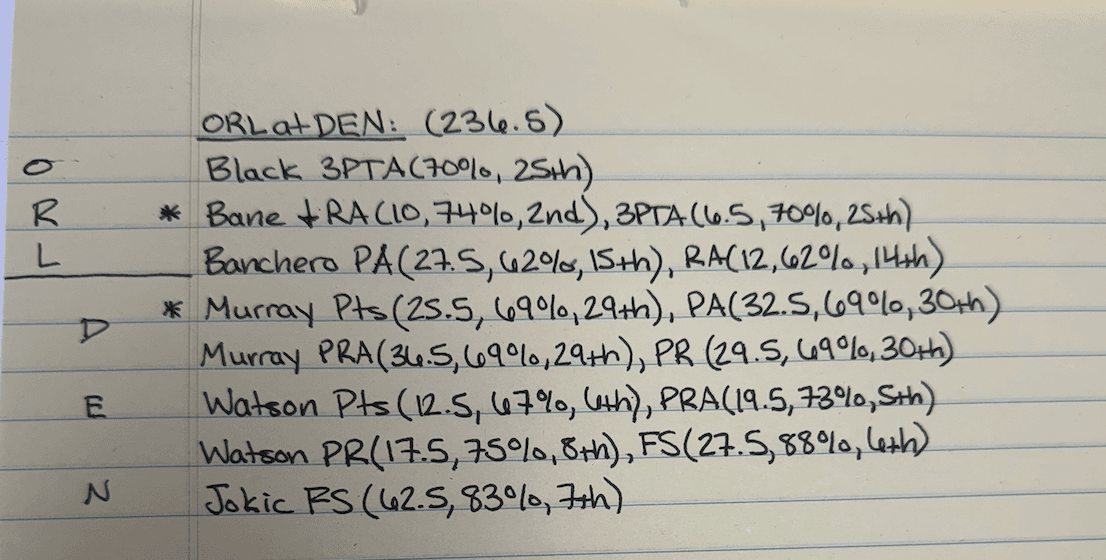 ORL at DEN: (236.5)
O Black 3PTA (70%, 25th)
R * Bane + RA (10, 74%, 2nd), 3PTA (6.5, 70%, 25th)
L Banchero PA (27.5, 62%, 15th), RA (12, 62%, 14th)
* Murray Pts (25.5, 69%, 29th), PA (32.5, 69%, 30th)
D Murray PRA (36.5, 69%, 29th), PR (29.5, 69%, 30th)
E Watson Pts (12.5, 67%, 6th), PRA (19.5, 73%, 5th)
Watson PR (17.5, 75%, 8th), FS (27.5, 88%, 6th)
N Jokic FS (62.5, 83%, 7th)